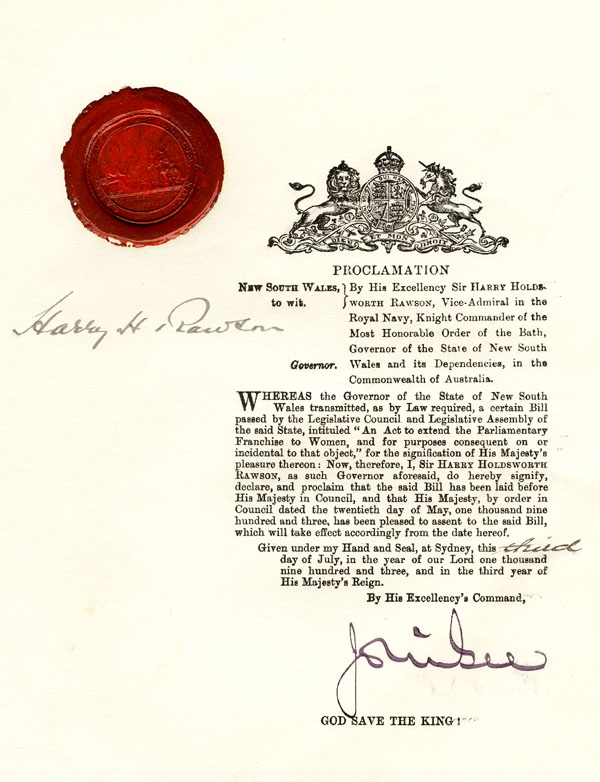 PROCLAMATION
NEW SOUTH WALES, } By His Excellency Sir HARRY HOLDS-
to wit. WORTH RAWSON, Vice-Admiral in the
Royal Navy, Knight Commander of the
Most Honorable Order of the Bath,
Harry H. Rawson
Governor of the State of New South
Governor. Wales and its Dependencies, in the
Commonwealth of Australia.
WHEREAS the Governor of the State of New South
Wales transmitted, as by Law required, a certain Bill
passed by the Legislative Council and Legislative Assembly of
the said State, intituled “An Act to extend the Parliamentary
Franchise to Women, and for purposes consequent on or
incidental to that object,” for the signification of His Majesty's
pleasure thereon: Now, therefore, I, Sir HARRY HOLDSWORTH
RAWSON, as such Governor aforesaid, do hereby signify,
declare, and proclaim that the said Bill has been laid before
His Majesty in Council, and that His Majesty, by order in
Council dated the twentieth day of May, one thousand nine
hundred and three, has been pleased to assent to the said Bill,
which will take effect accordingly from the date hereof.
Given under my Hand and Seal, at Sydney, this third
day of July, in the year of our Lord one thousand
nine hundred and three, and in the third year of
His Majesty's Reign.
By His Excellency's Command,
John See
GOD SAVE THE KING!